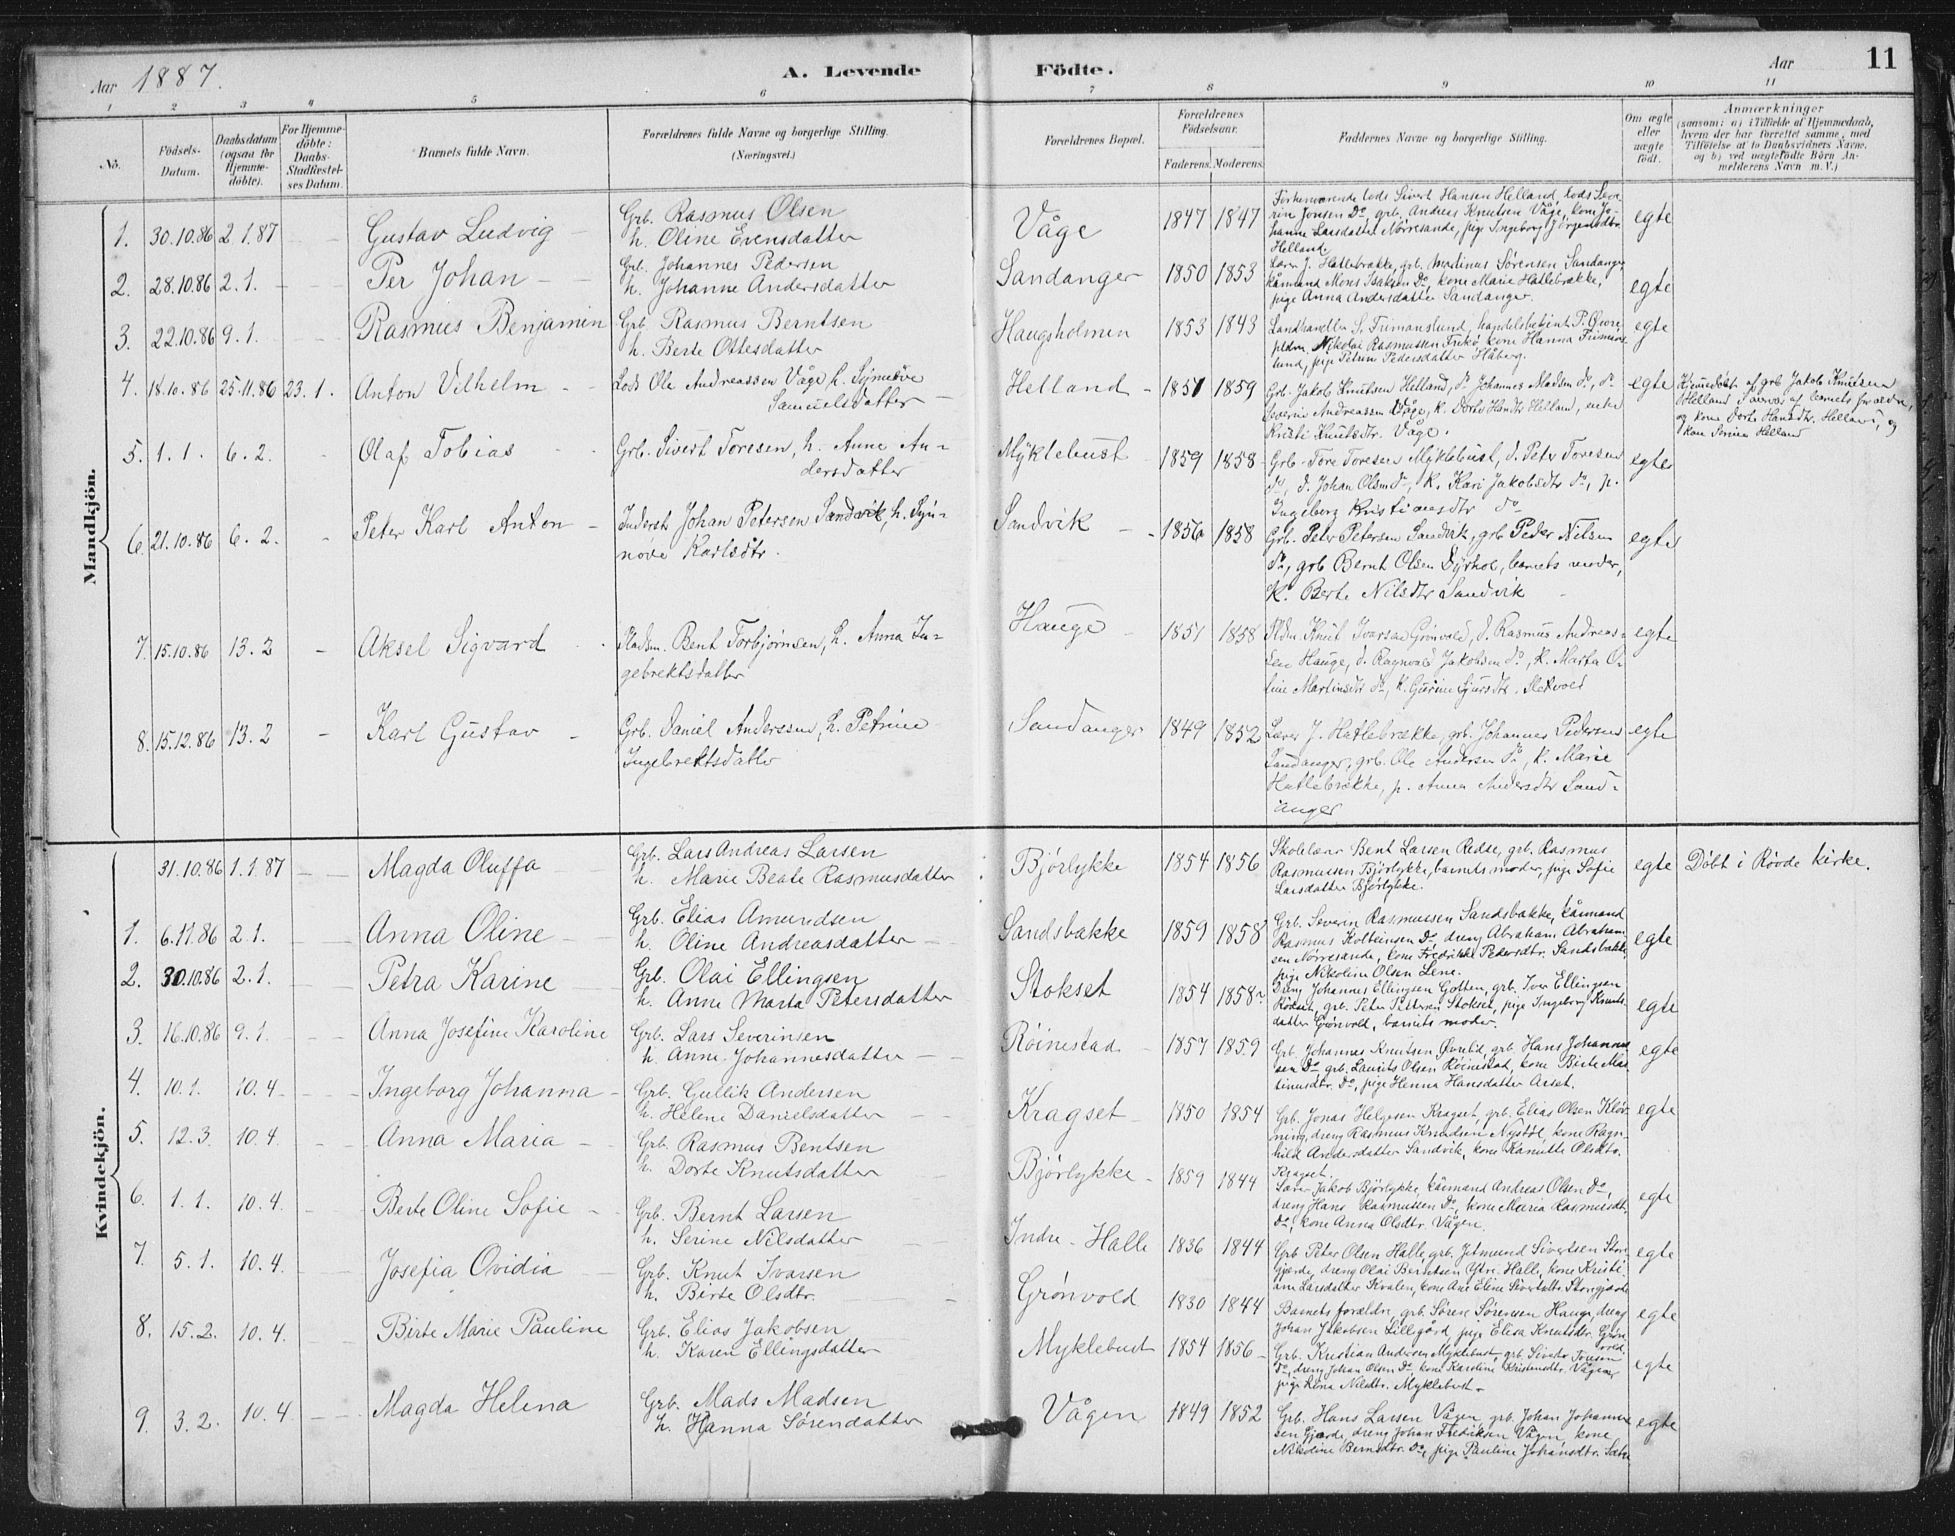 Aar 1887.
A. Levende Födte.
Aar
11
1 2 3 4 5 6 7 8 9 10 11
Nò.
Födsels-Datum.
Daabsdatum (ogsaa for Hjemme-döbte).
For Hjemme-döbte: Daabs-Stadfæstel-ses Datum.
Barnets fulde Navn.
Forældrenes fulde Navne og borgerlige Stilling. (Næringsvei.)
Forældrenes Bopæl.
Forældrenes Födselsaar.
Faderens. Moderens.
Faddernes Navne og borgerlige Stilling.
Om ægte eller uægte födt.
Anmærkninger
(saasom: a) i Tilfælde af Hjemmedaab,
hvem der har forrettet samme, med
Tilföielse af to Daabsvidners Navne,
og b) ved uægtefödte Börn An-
melderens Navn m. V.)
Mandkjön.
1. 30.10.86 2.1.87 Gustav Ludvig Grb. Rasmus Olsen
h. Oline Evensdatter Våge 1847 1847 egte
Lods Sivert Hansen Helland, lods
Jonsen Do, grb. Andreas Knutsen Våge, kone Jo-
hanne Larsdatter Nørresande, pige Ingeborg Jørgensdtr.
Helland.
2. 28.10.86 2.1. Per Johan Grb. Johannes Pedersen
h. Johanne Andersdatter Sandanger 1850 1853 egte
Lærer J. Hatlebrække, grb. Martinus Sørensen Sandanger,
kårmand Mons Isaksen Do, kone Marie Hatlebrække,
pige Anna Andersdatter Sandanger.
3. 22.10.86 9.1. Rasmus Benjamin Grb. Rasmus Berntsen
h. Berte Ottesdatter Haugsholmen 1853 1843 egte
Landhandler S. Frimanslund, handelsbetjent P.
Nikolai Rasmussen kone Hanna Frimans-
lund, pige Petrine Pedersdatter Håberg.
4. 18.10.86 25.11.86 23.1. Anton Vilhelm Lods Ole Andreassen Våge, h. Synnøve
Samuelsdatter Helland 1851 1859 egte
Grb. Jakob Knutsen Helland, do Johannes Madsen do, do
Severin Andreassen Våge, k. Dorte Hansdtr Helland, enke
Kristi Knutsdtr. Våge.
Hjemmedøbt af grb Jakob Knutsen
Helland af barnets forældre,
og kone Dorte Hansdtr. Helland, og
kone Serine Helland
5. 1.1. 6.2. Olaf Tobias Grb. Sivert Toresen, h. Anne An-
dersdatter Myklebust 1859 1858 egte
Grb. Tore Toresen Myklebust, d. Peter Toresen
do, d. Johan Olsen do, k. Kari Jakobsdtr do, p.
Ingeborg Kristiansdtr do
6. 21.10.86 6.2. Peter Karl Anton Inderst Johan Petersen Sandvik, h. Syn-
nøve Karlsdtr. Sandvik 1856 1858 egte
Grb. Peter Petersen Sandvik, grb Peder Nilsen
do, grb Bernt Olsen Dyrhol, barnets moder,
K. Berte Nilsdtr Sandvik
7. 15.10.86 13.2 Aksel Sigvard Pladsm. Bent Torbjørnsen, h. Anna In-
gebrektsdatter Hauge 1851 1858 egte
Pldm. Knut Ivarsen Grønvold, d. Rasmus Andreas-
sen Hauge, d. Ragnvald Jakobsen do, k. Marta O-
line Martinsdtr do, k. Gurine Sjursdtr. Sletvold
8. 15.12.86 13.2 Karl Gustav Grb. Daniel Anderssen, h. Petrine
Ingebrektsdatter Sandanger 1849 1852 egte
Lærer J. Hatlebrække, grb. Johannes Pedersen
Sandanger, grb. Ole Andersen do, k. Marie
Hatlebrække, p. Anna Andersdtr Sand-
anger
Kvindekjön.
31.10.86 1.1.87 Magda Oluffa Grb. Lars Andreas Larsen
h. Marie Beate Rasmusdatter Bjørlykke 1854 1856 egte
Skolelærer Bent Larsen Redse, grb. Rasmus
Rasmussen Bjørlykke, barnets moder, pige Sofie
Larsdatter Bjørlykke.
Døbt i Røvde kirke.
1. 6.11.86 2.1. Anna Oline Grb. Elias Amundsen
h. Oline Andreasdatter Sandsbakke 1859 1858 egte
Grb. Severin Rasmussen Sandsbakke, kårmand
Rasmus Kolbeinsen Do, dreng Abraham Abraham-
sen Nørresande, kone Fredrikke Pedersdtr. Sandsbakke,
pige Nikoline Olsen Lene.
2. 30.10.86 2.1. Petra Karine Grb. Olai Ellingsen
h. Anne Marta Petersdatter Stokset 1854 1858 egte
Dreng Johannes Ellingsen Gotten, grb. Iver Ellingsen
Rødset, grb. Peter Pettersen Stokset, pige Ingeborg Knuts-
datter Grønvold, barnets moder.
3. 16.10.86 9.1. Anna Josefine Karoline Grb. Lars Severinsen
h. Anne Johannesdatter Røinestad 1857 1859 egte
Grb. Johannes Knutsen Øvrelid, grb. Hans Johannes-
sen Do grb. Laurits Olsen Røinestad, kone Birte Mar-
tinusdtr. Do, pige Henna Hansdatter Årset.
4. 10.1. 10.4. Ingeborg Johanna Grb. Gullik Andersen
h. Helene Danielsdatter Kragset 1850 1854 egte
Grb. Jonas Helgesen Kragset, grb. Elias Olsen Kløv-
ning, dreng Rasmus Knudsen Nystøl, kone Ragn-
hild Andersdatter Sandvik, kone Kanutte Olsdtr.
Kragset.
5. 12.3. 10.4. Anna Maria Grb. Rasmus Bentsen
h. Dorte Knutsdatter Bjørlykke 1859 1844 egte
Lærer Jakob Bjørlykke, kårmand Andreas Olsen Do,
dreng Hans Rasmussen Do, kone Maria Rasmusdtr.
Do, kone Anna Olsdtr. Vågen.
6. 1.1. 10.4. Berte Oline Sofie Grb. Bernt Larsen
h. Serine Nilsdatter Indre-Halle 1836 1844 egte
Grb Peter Olsen Halle, grb. Jetmund Sivertsen Stor-
gjærde, dreng Olai Berntsen Ytre Halle, kone Kristi-
ane Larsdatter Kvalen, kone Ane Eline Sivertsdtr. Storgjærde
7. 5.1. 10.4. Josefia Ovidia Grb. Knut Ivarsen
h. Birte Olsdtr. Grønvold 1830 1844 egte
Barnets forældre, grb. Søren Sørensen Hauge, dreng
Johan Jakobsen Lillgård, pige Elisa Knutsdtr. Grøn-
vold.
8. 15.2. 10.4. Birte Marie Pauline Grb. Elias Jakobsen
h. Karen Ellingsdatter Myklebust 1854 1856 egte
Grb. Kristian Andersen Myklebust, grb. Sivert Toresen
Do, dreng Johan Olsen Do, kone Karoline Kristensdtr. Vågen,
pige Lina Nilsdtr. Myklebust.
9. 3.2. 10.4. Magda Helena Grb. Mads Madsen
h. Hanna Sørensdatter Vågen 1849 1852 egte
Grb. Hans Larsen Vågen, grb. Johan Johannes-
sen Gjærde, dreng Johan Fredriksen Vågen, kone
Nikoline Berntsdtr. Do, pige Pauline Johansdtr.